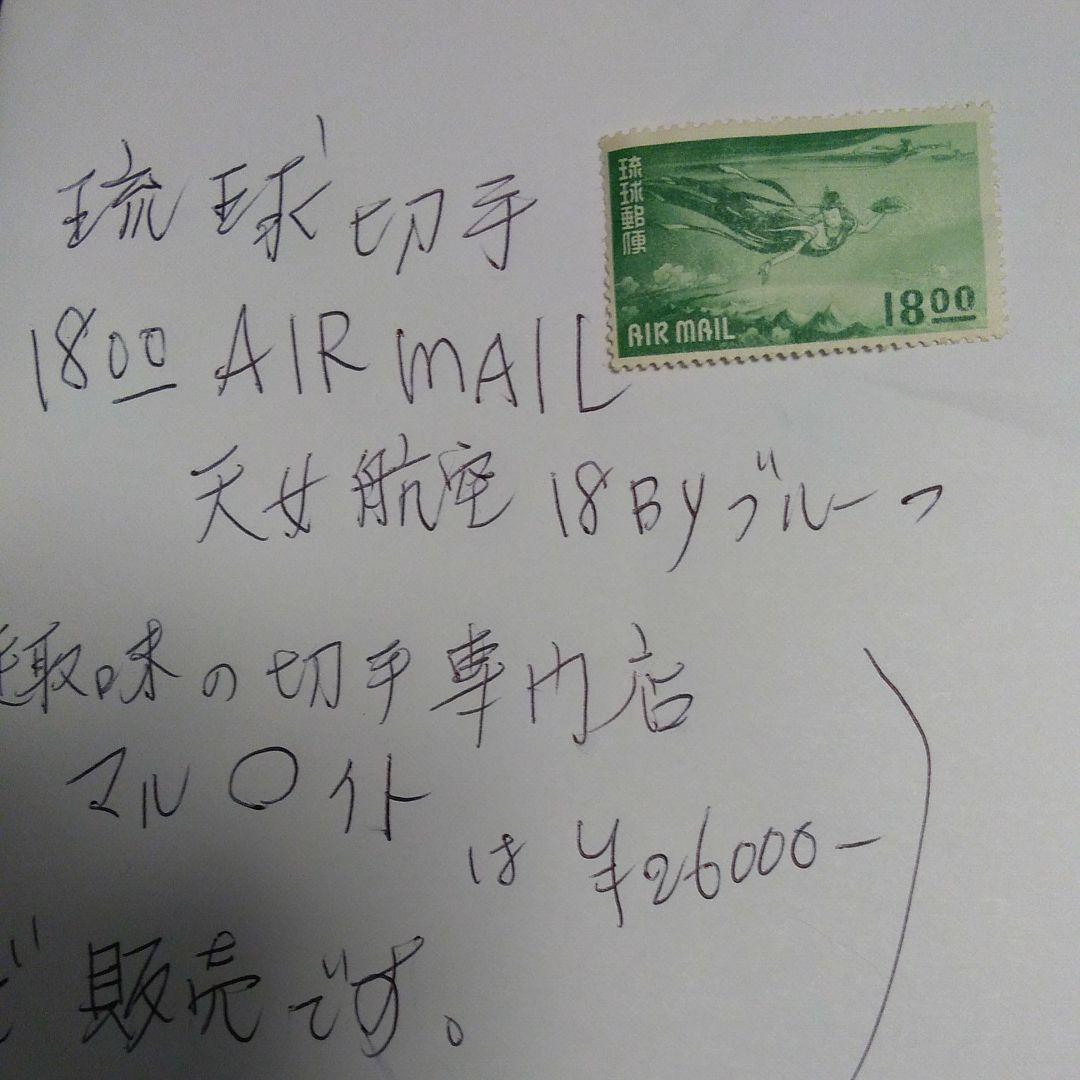 琉球切手
琉球郵便
AIR MAIL
18 00
18 00 AIR MAIL
天女航空 18BYブルーっ
趣味の切手専門店
マル〇イト
は ¥26000-
ど 販売です。